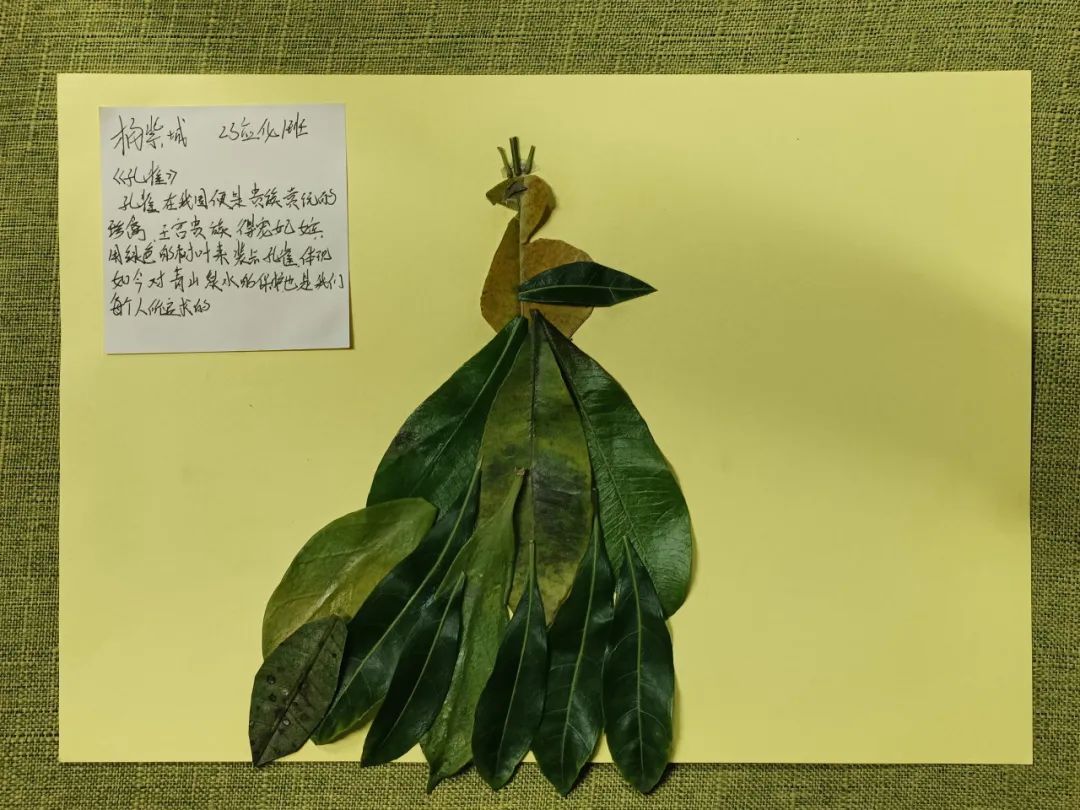 紫城 23应化1班
《孔雀》
孔雀在我国便是贵族赏玩的
珍禽 王宫贵族 得宠妃嫔
用绿色的树叶来装点孔雀
如今对青山绿水的保护也是我们
每个人所追求的